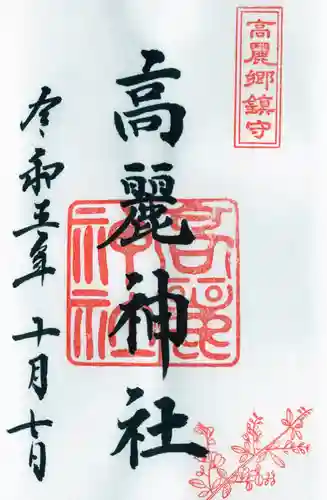 高麗郷鎮守
高麗神社
令和五年十月十七日